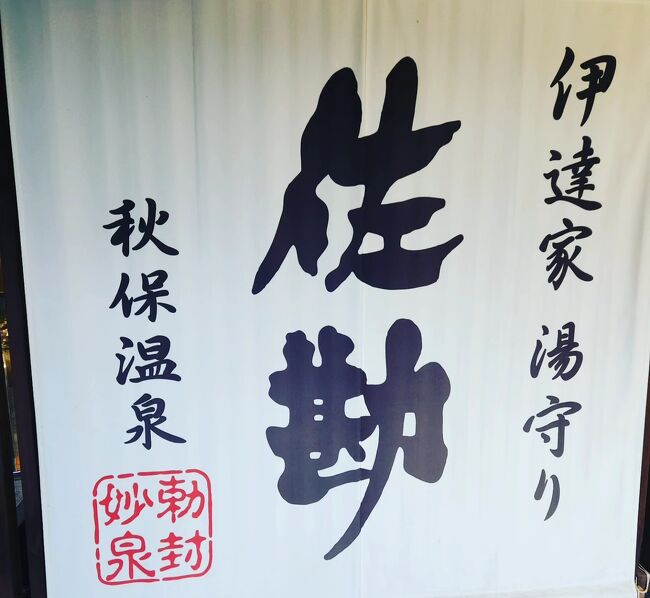 伊達家 湯守り
佐勘
秋保温泉
勅封
妙泉